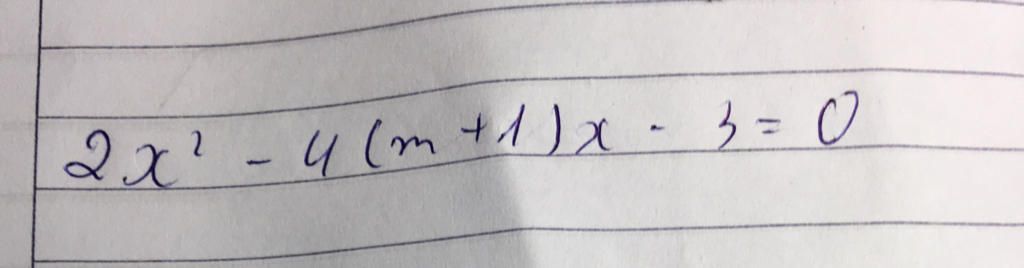 2x² - 4(m+1)x - 3 = 0